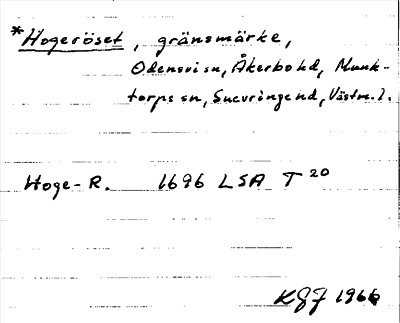 *Hogeröset, gränsmärke,
Odensvi sn, Åkerbo hd, Munk-
torps sn, Snevringe hd, Västm. l.
Hoge-R. 1696 LSA T 20
KGJ 1966